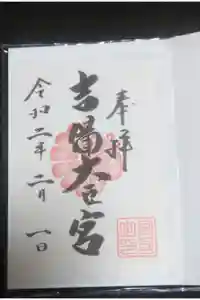 奉拝
吉備大臣宮
令和二年二月一日